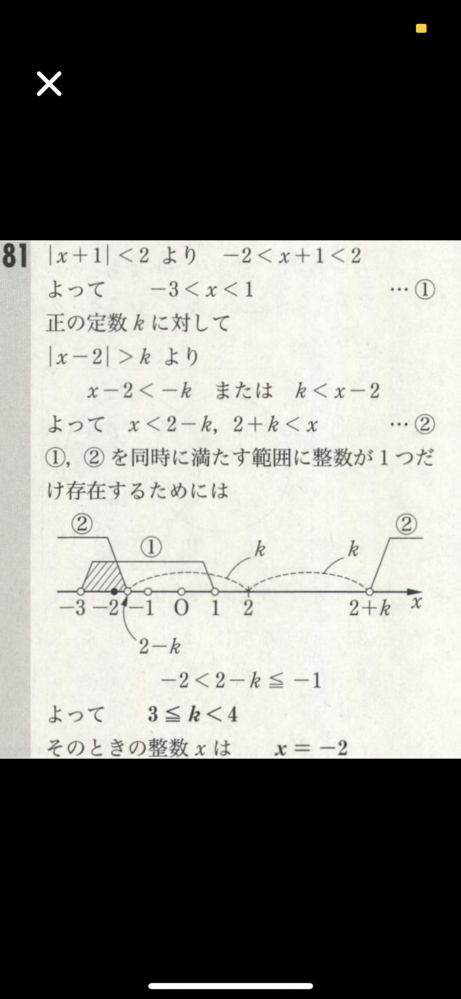 81 |x+1|<2 より −2<x+1<2
よって −3<x<1 …①
正の定数 k に対して
|x−2|>k より
x−2<−k または k<x−2
よって x<2−k, 2+k<x …②
①, ② を同時に満たす範囲に整数が 1 つだ
け存在するためには
② ① k k ②
−3 −2 −1 O 1 2 2+k x
2−k
−2<2−k≦−1
よって 3≦k<4
そのときの整数 x は x=−2